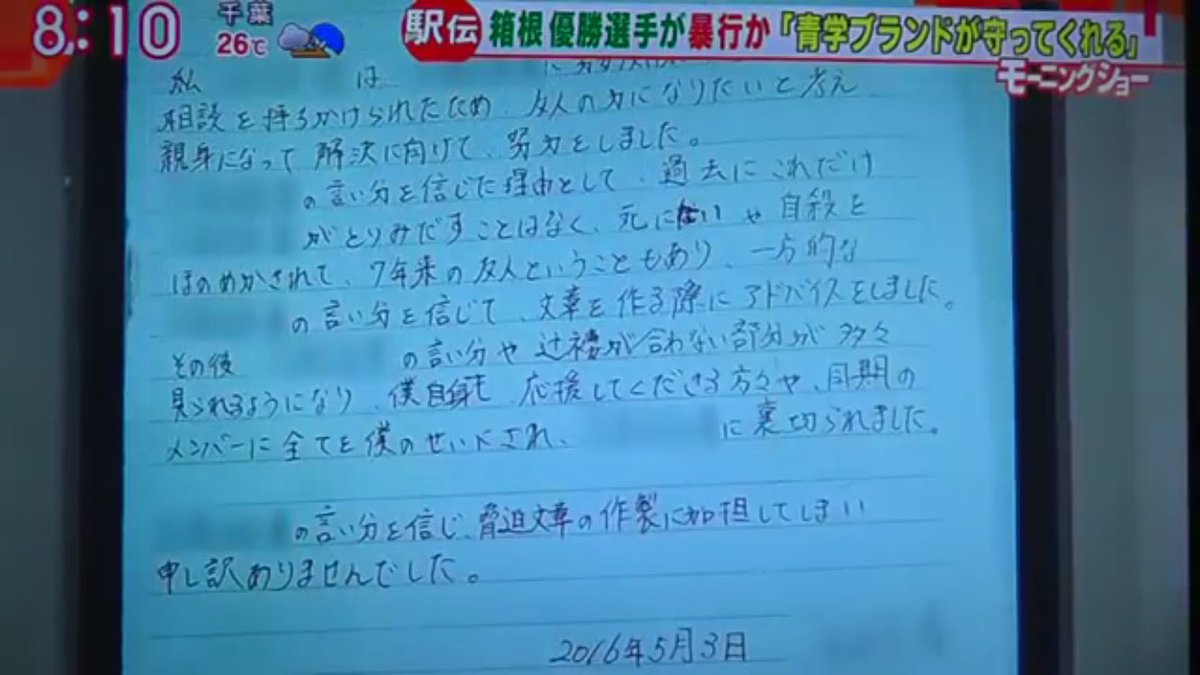 8:10
千葉
26℃
駅伝
箱根 優勝選手が暴行か「青学ブランドが守ってくれる」
モーニングショー
私 は
相談を持ちかけられたため、友人の力になりたいと考え
親身になって解決に向けて、努力をしました。
の言い分を信じた理由として、過去にこれだけ
がとりみだすことはなく、死にたい や 自殺を
ほのめかされて、7年来の友人ということもあり、一方的な
の言い分を信じて、文章を作る際にアドバイスをしました。
その後 の言い分や辻褄が合わない部分が多々
見られるようになり、僕自身も、応援してくださる方々や、同期の
メンバーに全てを僕のせいにされ、 に裏切られました。
の言い分を信じ、脅迫文章の作製に加担してしまい
申し訳ありませんでした。
2016年5月3日